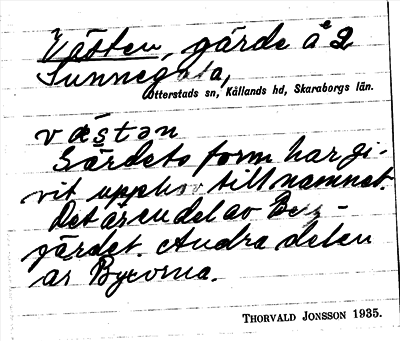 Västen, gärde å 2
Sunnegåta,
Otterstads sn, Kållands hd, Skaraborgs län.
västən
Gärdets form har gi-
vit upphov till namnet.
Det är en del av
gärdet. Andra delen
är Byrorna.
THORVALD JONSSON 1935.